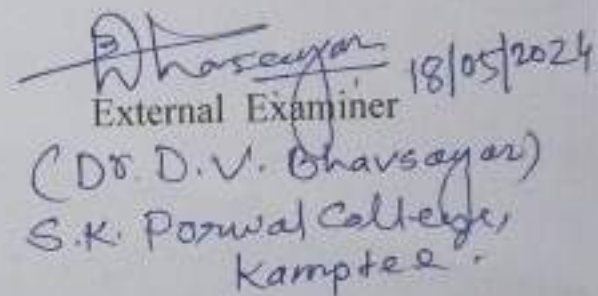 Bhavsagar 18/05/2024
External Examiner
(Dr. D. V. Bhavsagar)
S.K. Porwal College,
Kamptee.